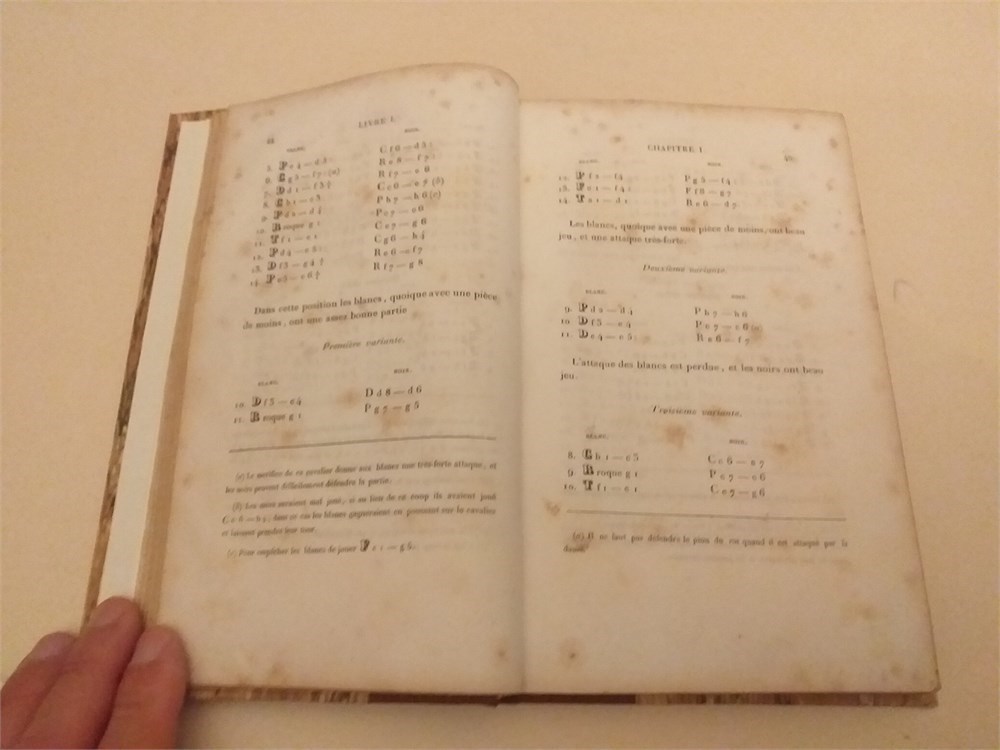 LIVRE I.
BLANC. NOIR.
5. P e4 — d5: C f6 — d5:
6. C g5 — f7: (a) R e8 — f7:
7. D d1 — f3† R f7 — e6
8. C b1 — c3 C c6 — e7 (b)
9. P d2 — d4 P h7 — h6 (c)
10. Roque g1 P c7 — c6
11. T f1 — e1 C e7 — g6
12. P d4 — e5: C g6 — h4
13. D f3 — g4† R e6 — f7
14. P e5 — e6† R f7 — g8
Dans cette position les blancs, quoique avec une pièce
de moins, ont une assez bonne partie
Première variante.
BLANC. NOIR.
10. D f3 — e4 D d8 — d6
11. Roque g1 P g7 — g5
(a) Le sacrifice de ce cavalier donne aux blancs une très-forte attaque, et
les noirs peuvent difficilement défendre la partie.
(b) Les noirs auraient mal joué, si au lieu de ce coup ils avaient joué
C c6 — b4; dans ce cas les blancs gagneraient en poussant sur le cavalier
et laissant prendre leur tour.
(c) Pour empêcher les blancs de jouer F c1 — g5.
CHAPITRE I
BLANC. NOIR.
12. P f2 — f4 P g5 — f4:
13. F c1 — f4: F f8 — g7
14. T a1 — d1 R e6 — d7
Les blancs, quoique avec une pièce de moins, ont beau
jeu, et une attaque très-forte.
Deuxième variante.
BLANC. NOIR.
9. P d2 — d4 P b7 — b6
10. D f3 — e4 P c7 — c6
11. D e4 — e5: R e6 — f7
L'attaque des blancs est perdue, et les noirs ont beau
jeu.
Troisième variante.
BLANC. NOIR.
8. C b1 — c3 C c6 — e7
9. Roque g1 P c7 — c6
10. T f1 — e1 C e7 — g6
(a) Il ne faut pas défendre le pion du roi quand il est attaqué par la
dame.